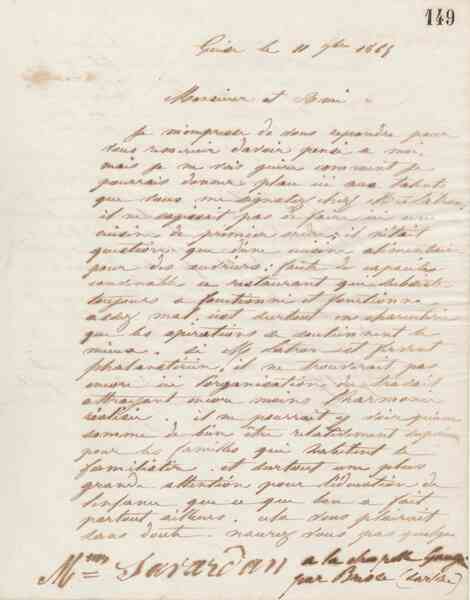 149
Guise le 11 9bre 1865
Monsieur et Ami
Je m'empresse de vous repondre pour
vous remercier d'avoir pensé a moi
mais je ne vois guère comment je
pourrais donner place ici aux talents
que vous me signalez chez Mr Latron
il ne s'agissait pas de faire ici une
cuisine de premier ordre; il n'était
question que d'une cuisine alimentaire
pour des ouvriers: faute de capacités
convenables ce restaurant qui subsiste
toujours a fonctionné et fonctionne
assez mal. c'est surtout en charcuterie
que les opérations se soutiennent le
mieux. Si Mr Latron est fervent
phalanstérien, il ne trouverait pas
encore ici l'organisation du travail
attrayant encore moins l'harmonie
réalisée. il ne pourrait y voir qu'une
somme de bien être relativement supérieur
pour les familles qui habitent le
familistère. et surtout une plus
grande attention pour l'éducation de
l'enfance que ce que l'on a fait
partout ailleurs. cela vous plairait
sans doute. n'aurez vous pas quelque
Savardan a la chapelle
par (Sarthe)